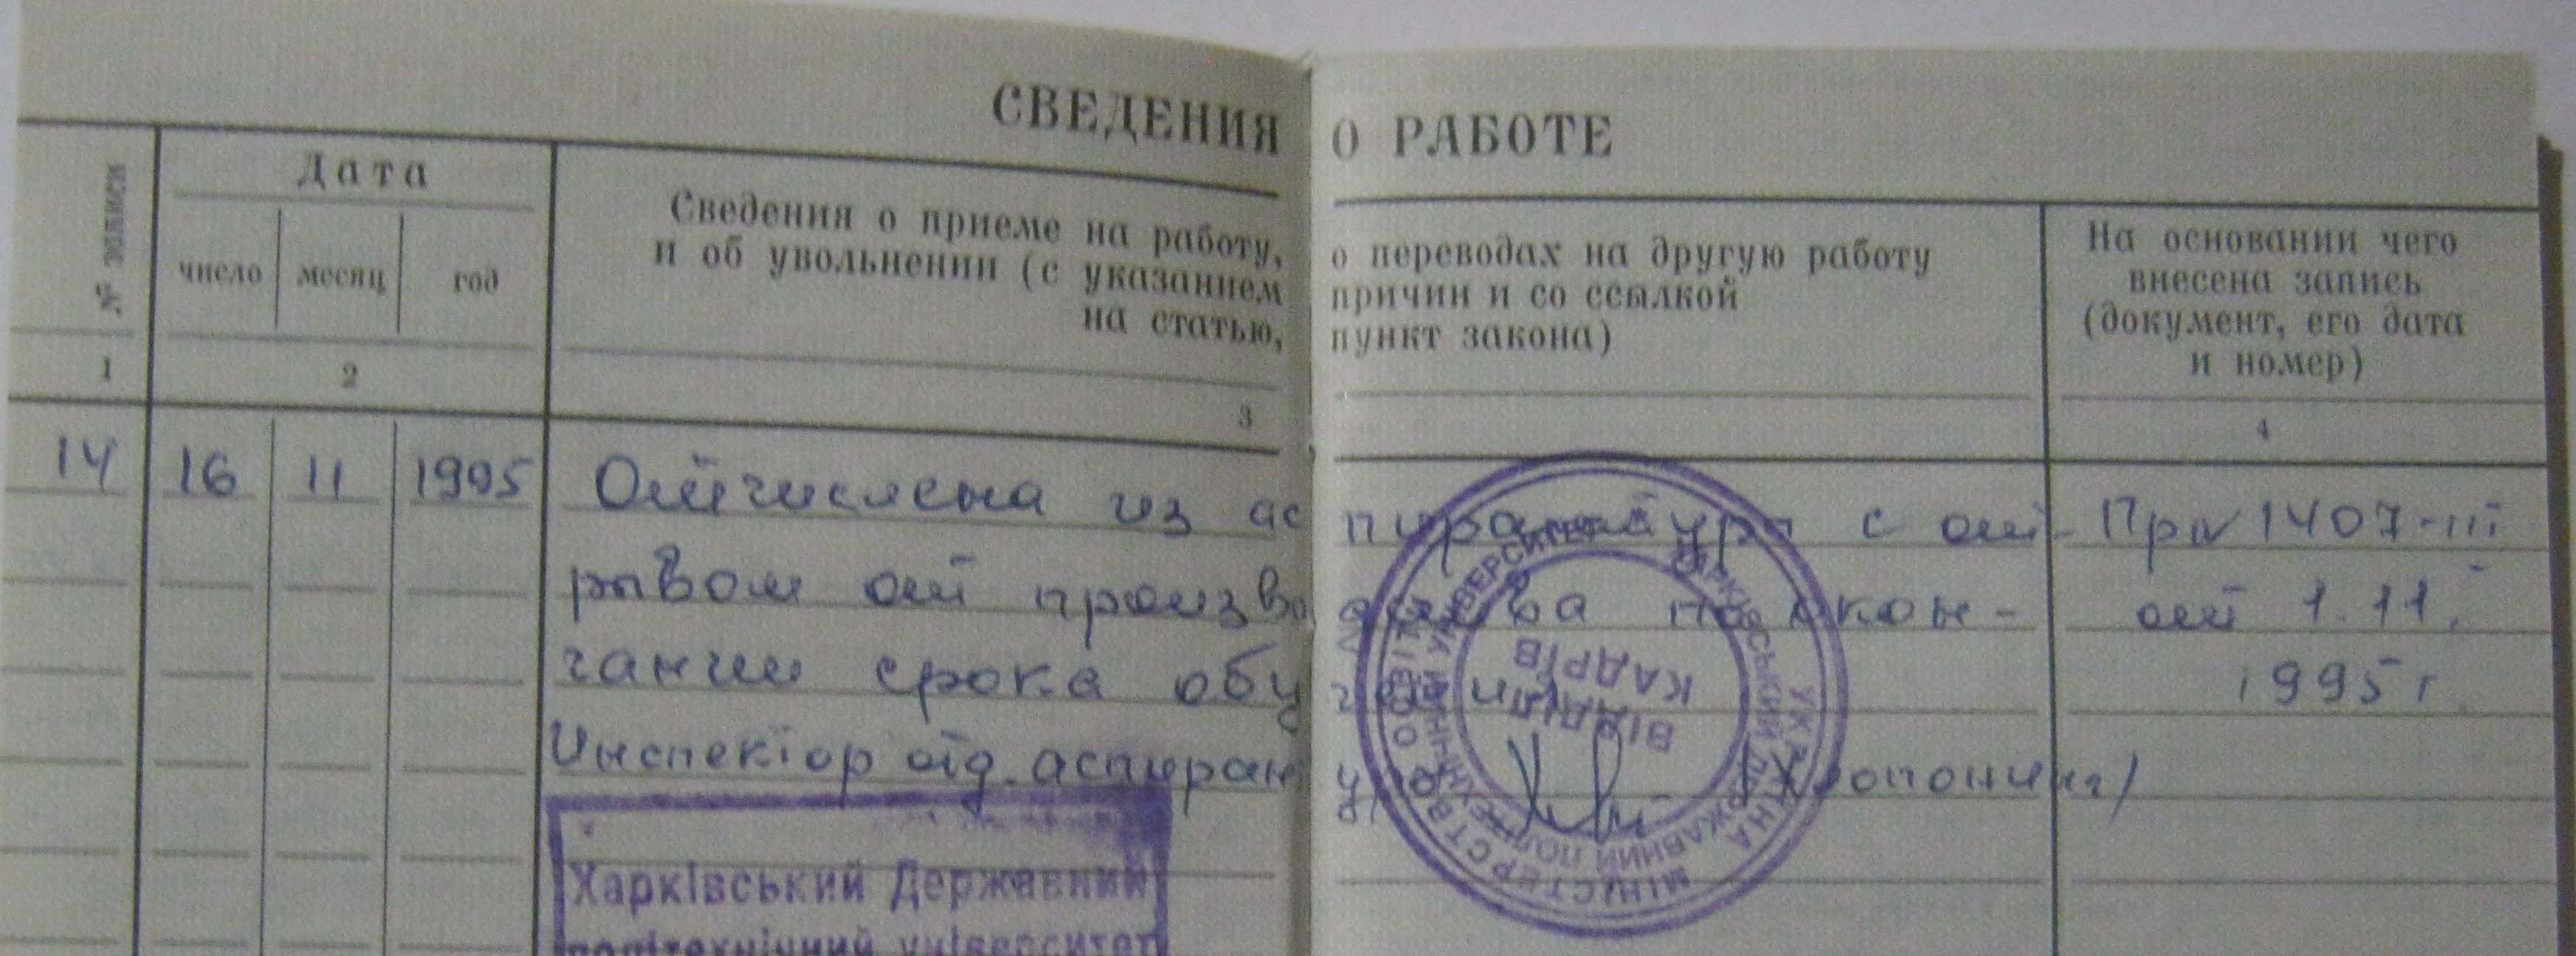 СВЕДЕНИЯ О РАБОТЕ
№ записи
Дата
число месяц год
Сведения о приеме на работу, о переводах на другую работу
и об увольнении (с указанием причин и со ссылкой
на статью, пункт закона)
На основании чего
внесена запись
(документ, его дата
и номер)
1 2 3 4
14 16 11 1995 Отчислена из аспирантуры с от- Пр № 1407-III
рывом от производства по окон- от 1.11.
чании срока обучения 1995 г
Инспектор отд. аспирантуры
Харківський Державний
політехнічний університет
УКРАЇНА
МІНІСТЕРСТВО ОСВІТИ
ХАРКІВСЬКИЙ ДЕРЖАВНИЙ ПОЛІТЕХНІЧНИЙ УНІВЕРСИТЕТ
ВІДДІЛ
КАДРІВ